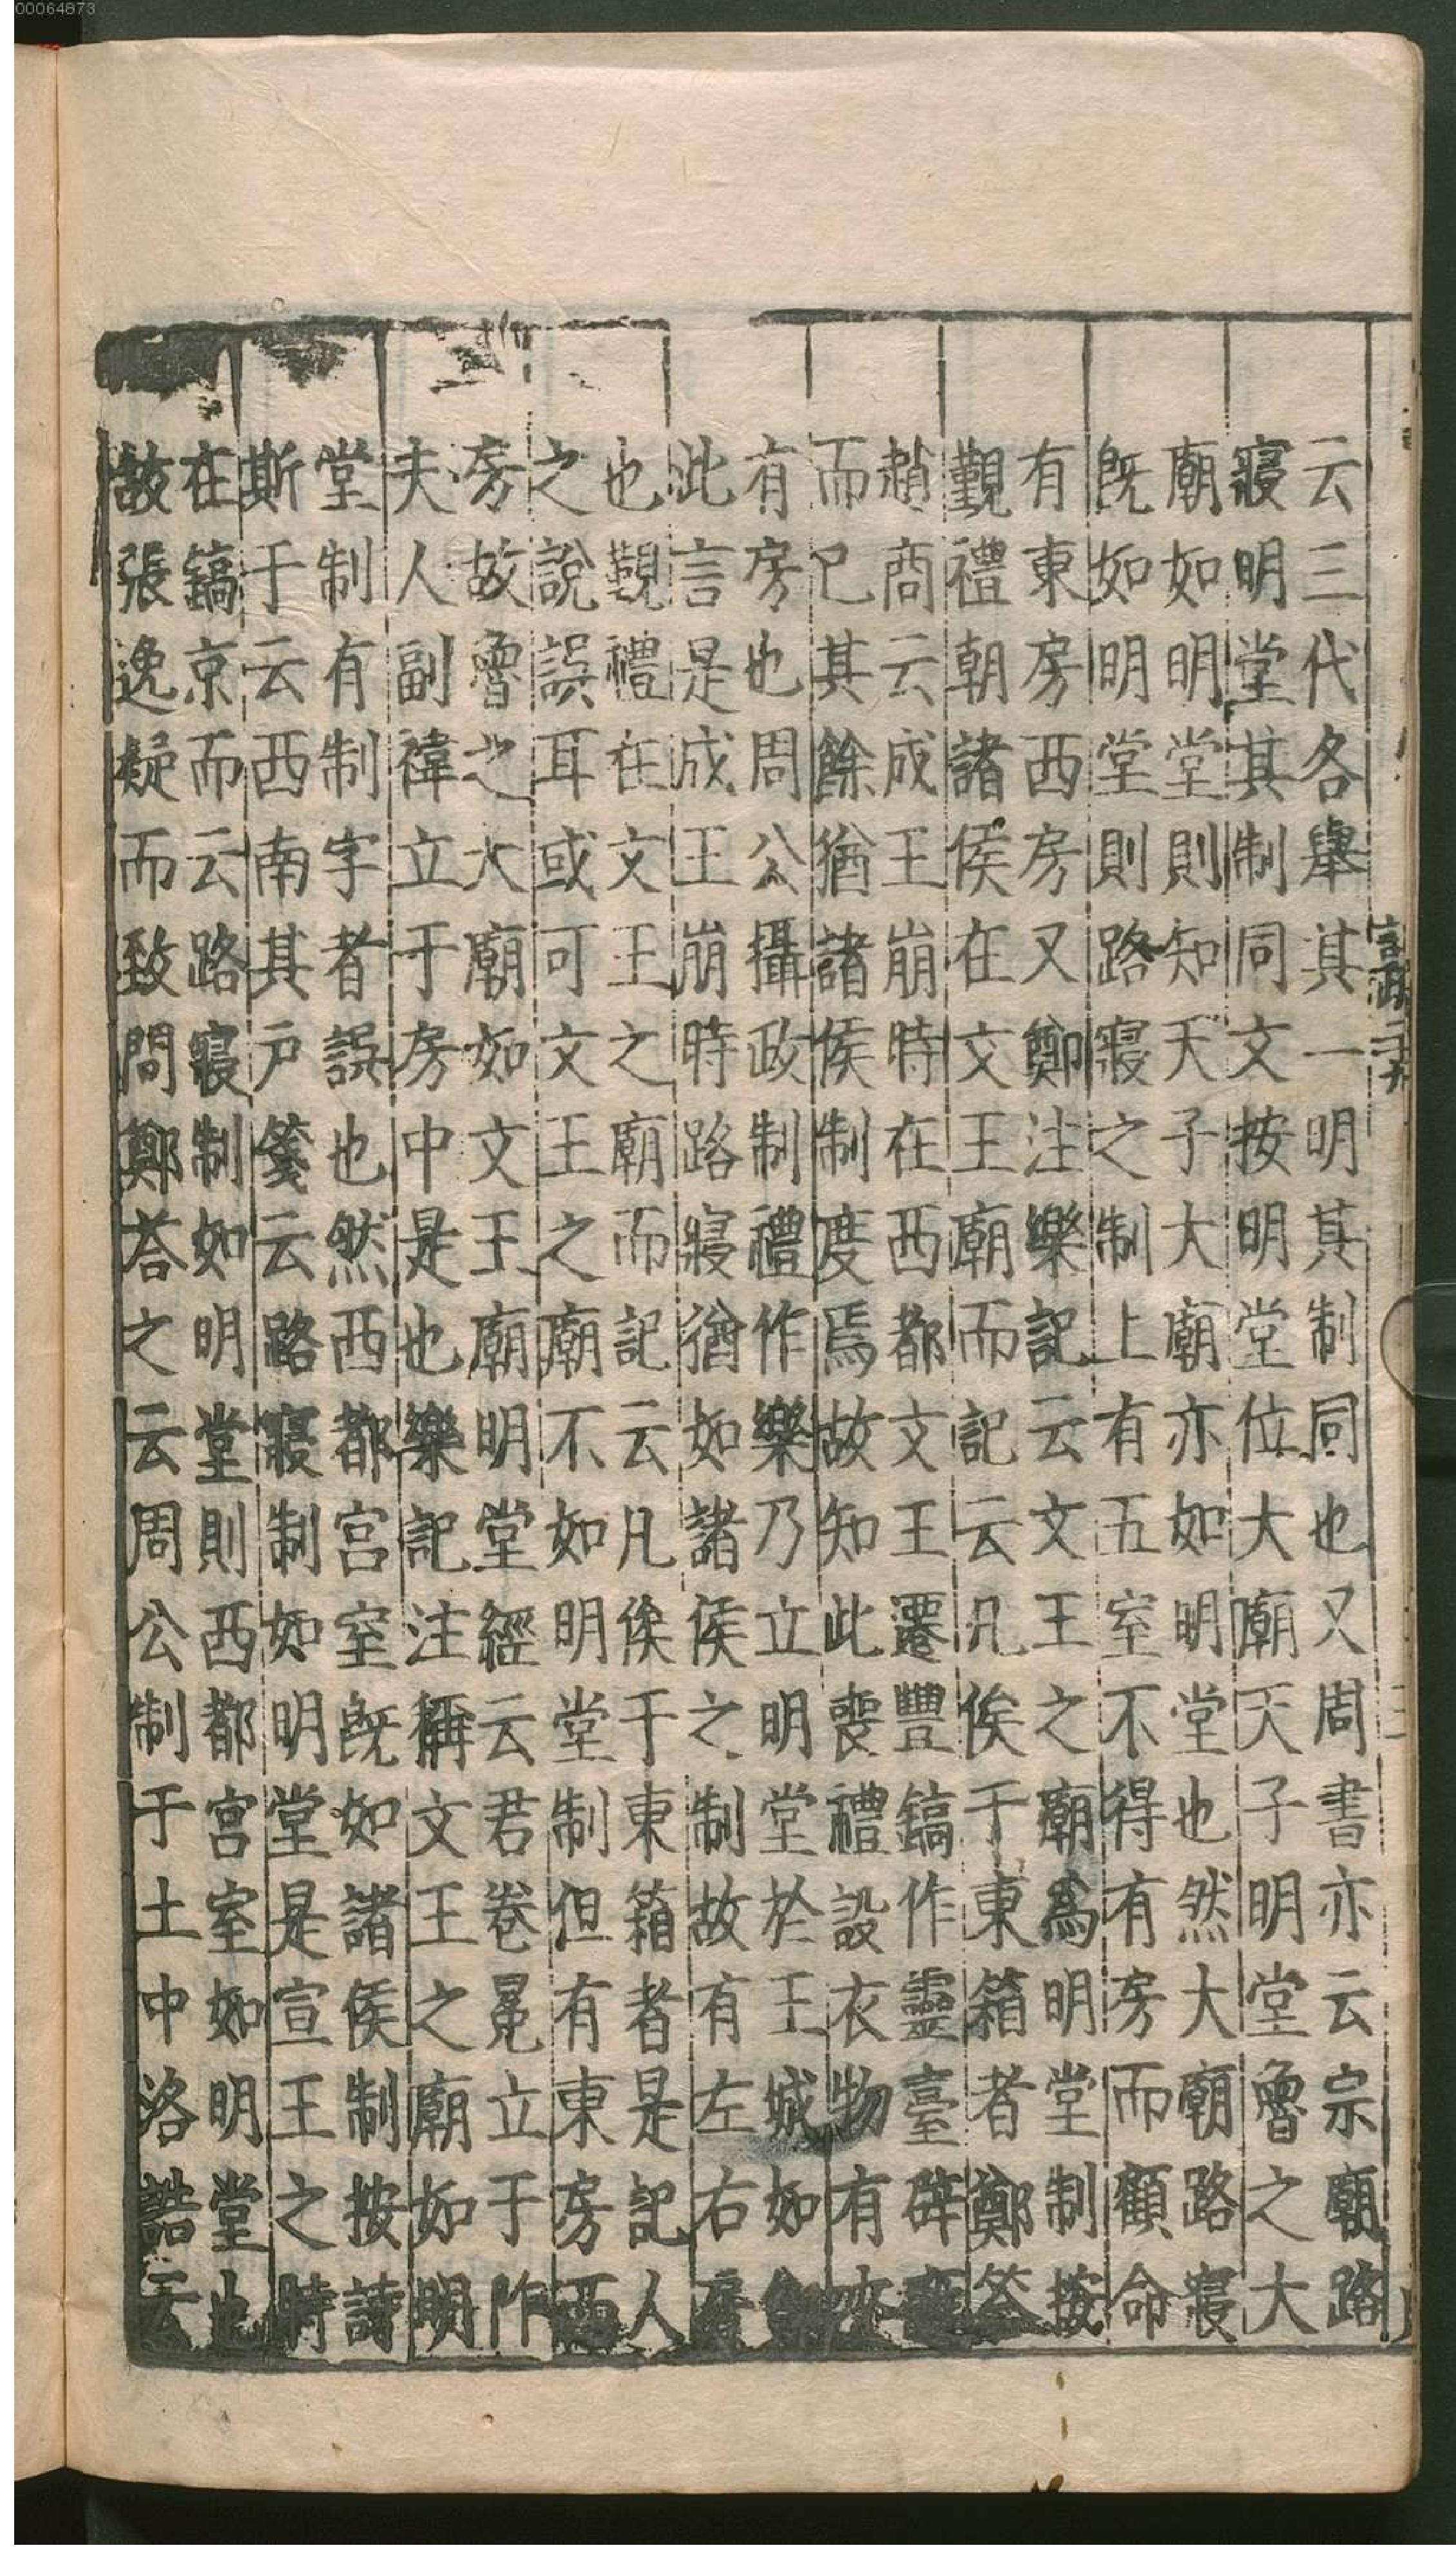 00064873
云三代各舉其一明其制同也又周書亦云宗廟路
寢明堂其制同文按明堂位大廟天子明堂魯之大
廟如明堂則知天子大廟亦如明堂也然大廟路寢
旣如明堂則路寢之制上有五室不得有房而顧命
有東房西房又鄭注樂記云文王之廟爲明堂制按
覲禮朝諸侯在文王廟而記云凡俟于東箱者鄭答
趙商云成王崩時在西都文王遷豐鎬作靈臺辟廱
而已其餘猶諸侯制度焉故知此喪禮設衣物有夾
有房也周公攝政制禮作樂乃立明堂於王城如
此言是成王崩時路寢猶如諸侯之制故有左右房
也覲禮在文王之廟而記云凡俟于東箱者是記人
之說誤耳或可文王之廟不如明堂制但有東房西
房故魯之大廟如文王廟明堂經云君卷冕立于阼
夫人副褘立于房中是也樂記注稱文王之廟如明
堂制有制字者誤也然西都宮室旣如諸侯制按詩
斯于云西南其戶箋云路寢制如明堂是宣王之時
在鎬京而云路寢制如明堂則西都宮室如明堂也
故張逸疑而致問鄭荅之云周公制于土中洛誥云